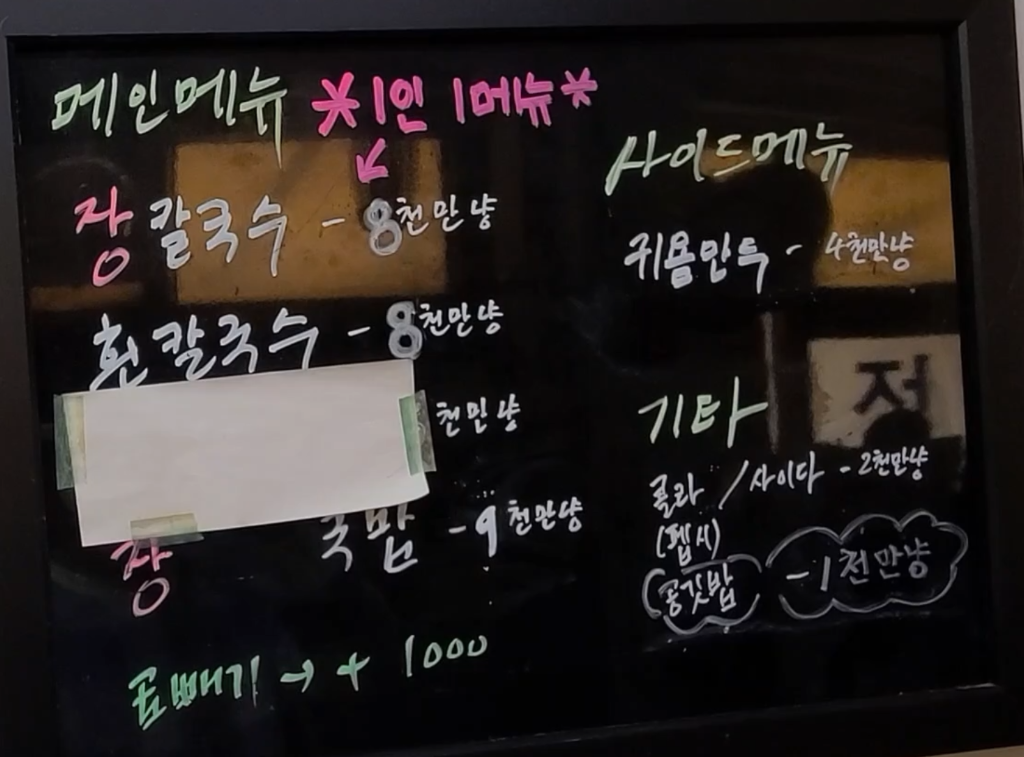 메인메뉴 *1인 1메뉴*
장 칼국수 - 8천만냥
흰칼국수 - 8천만냥
천만냥
장 국밥 - 9천만냥
곱빼기 → + 1000
사이드메뉴
귀욤만두 - 4천만냥
기타
콜라 / 사이다 - 2천만냥
(펩시)
공깃밥 - 1천만냥
정